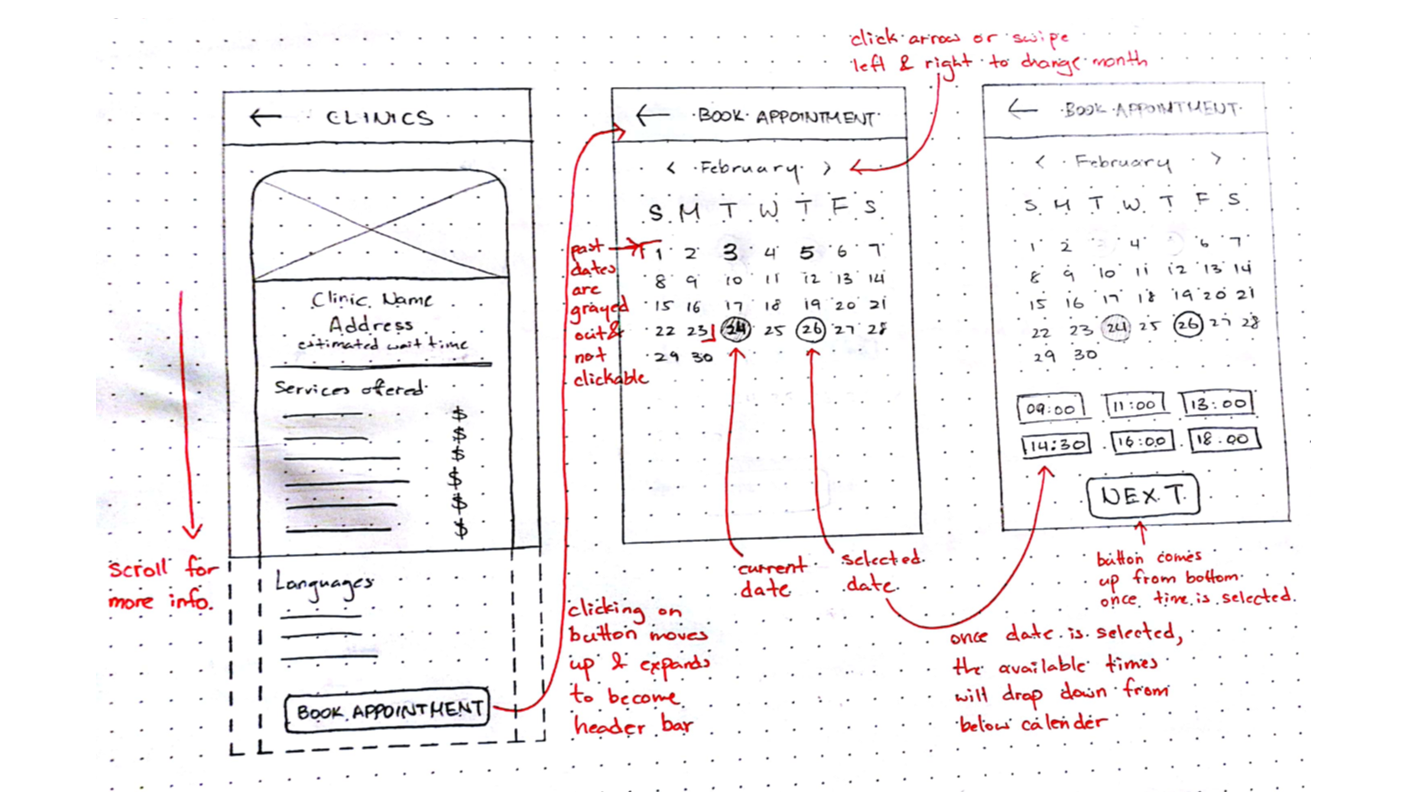 click arrow or swipe
left & right to change month
← CLINICS
Clinic Name
Address
estimated wait time
Services offered
$
$
$
$
$
$
Scroll for
more info.
Languages
BOOK APPOINTMENT
clicking on
button moves
up & expands
to become
header bar
← BOOK APPOINTMENT
< February >
S M T W T F S
1 2 3 4 5 6 7
8 9 10 11 12 13 14
15 16 17 18 19 20 21
22 23 24 25 26 27 28
29 30
past
dates
are
grayed
out &
not
clickable
current
date
selected
date
← BOOK APPOINTMENT
< February >
S M T W T F S
1 2 4 6 7
8 9 10 11 12 13 14
15 16 17 18 19 20 21
22 23 24 25 26 27 28
29 30
09:00 11:00 13:00
14:30 16:00 18.00
NEXT
button comes
up from bottom
once time is selected.
once date is selected,
the available times
will drop down from
below calender